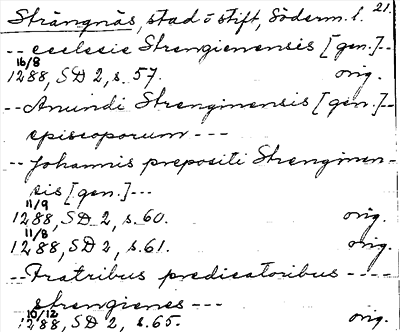 Strängnäs, stad o stift, Söderm. l. 21.
-- ecclesie Strengienensis [gen.]--
16/8
1288, SD 2, s. 57. orig.
-- Anundi Strenginensis [gen.]--
episcoporum ---
-- Johannis prepositi Strenginen-
sis [gen.]---
11/9
1288, SD 2, s. 60. orig.
11/8
1288, SD 2, s. 61. orig.
-- Fratribus predicatoribus ----
strengienes ---
10/12
1288, SD 2, s. 65. orig.